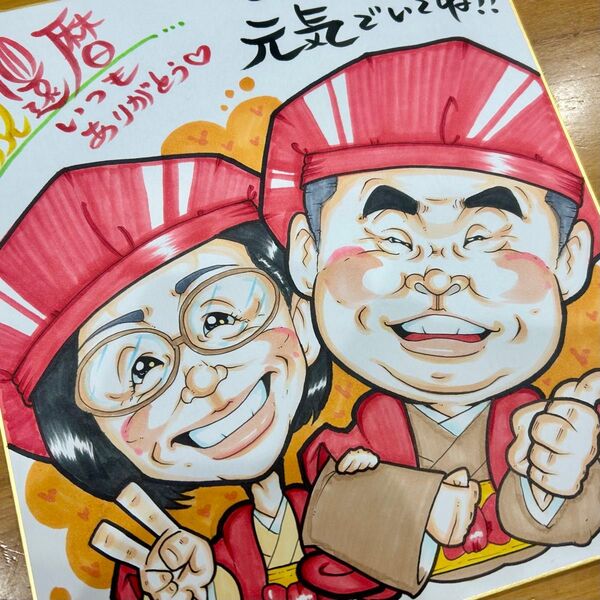 還暦
いつも
ありがとう♡
元気でいてね!!